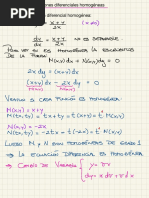 ones diferenciales homogéneas
diferencial homogénea
= x+y / 2x (x>0)
dy/dx = x+y / 2x → NO ES SEPARABLE.
POR VER SI ES HOMOGÉNEA LA ESCRIBIMOS
DE LA FORMA: M(x,y)dx + N(x,y)dy = 0
2x dy = (x+y) dx
(x+y) dx - 2x dy = 0
VEAMOS SI CADA PARTE ES HOMOGÉNEA:
M(x,y) = x+y
M(tx,ty) = tx+ty = t(x+y) = t M(x,y)
N(x,y) = -2x
N(tx,ty) = -2tx = t(-2x) = t N(x,y)
LUEGO M y N SON HOMOGÉNEAS DE GRADO 1
→ LA ECUACIÓN DIFERENCIAL ES HOMOGÉNEA.
→ CAMBIO DE VARIABLE { y = xv
dy = x dv + v dx